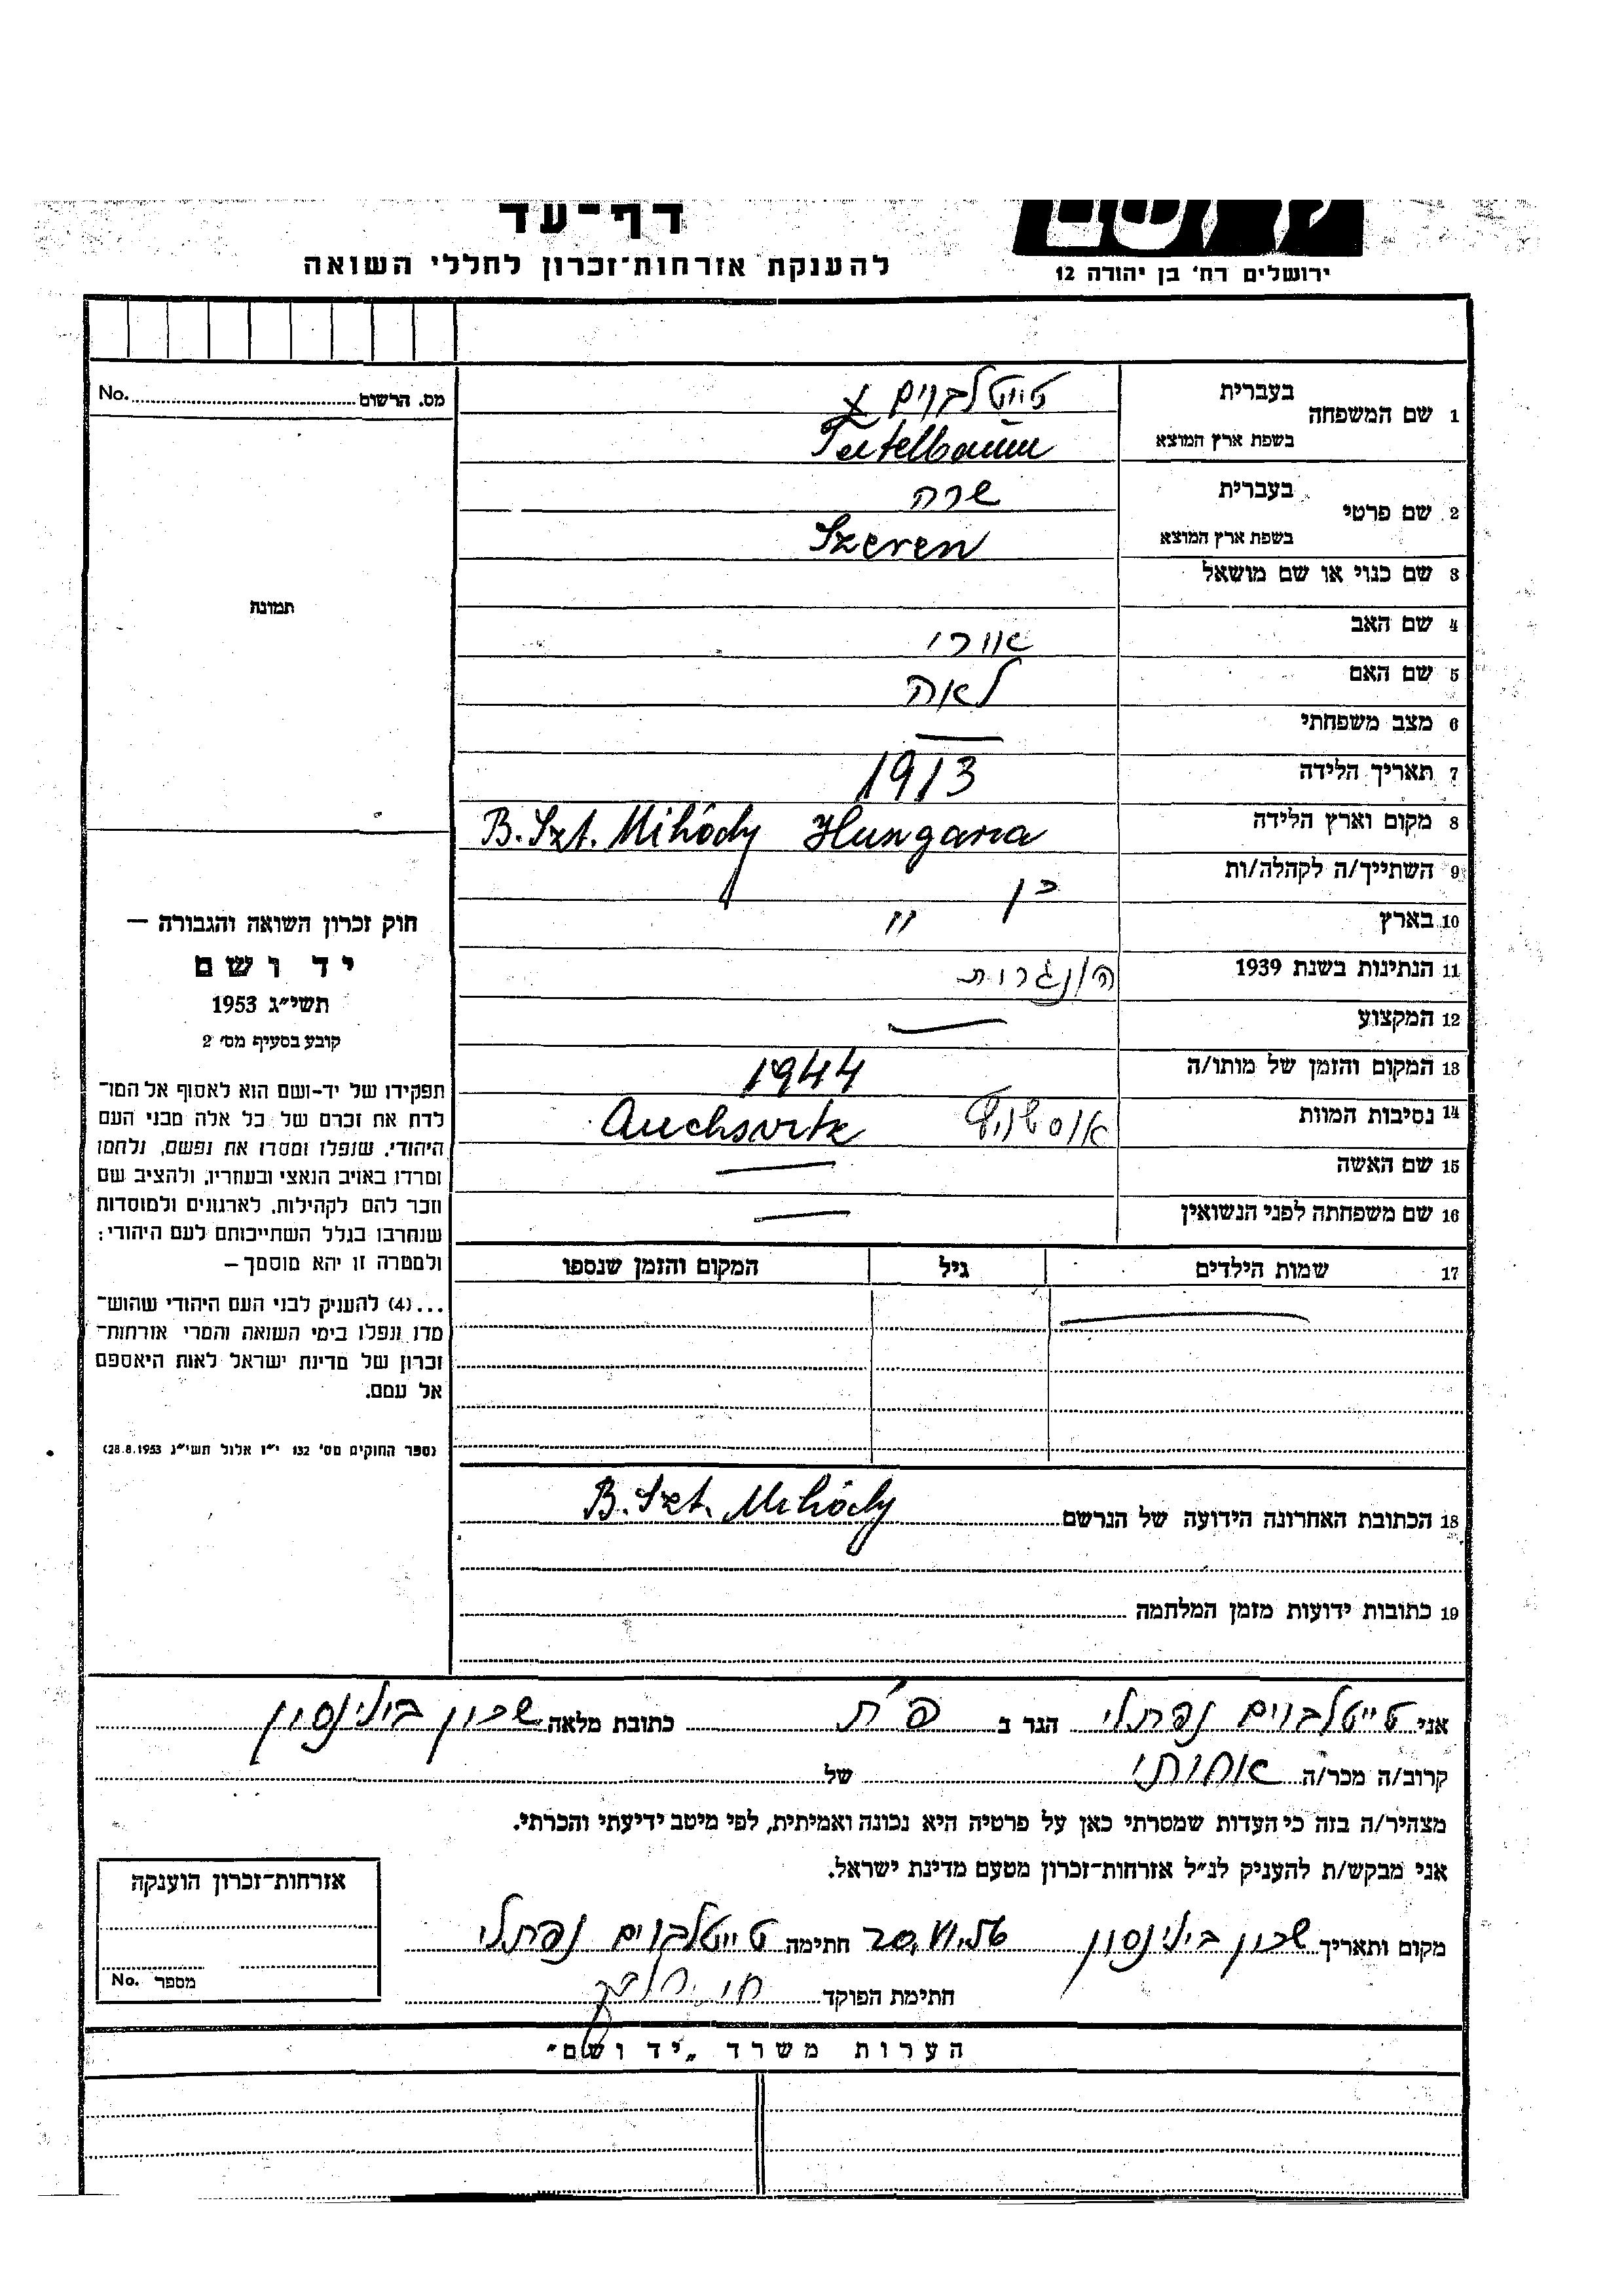 דף-עד
להענקת אזרחות-זכרון לחללי השואה
ירושלים רח' בן יהודה 12
No. מס. הרשום
תמונה
חוק זכרון השואה והגבורה –
יד ושם
תשי"ג 1953
קובע בסעיף מס' 2
תפקידו של יד-ושם הוא לאסוף אל המו-
לדת את זכרם של כל אלה מבני העם
היהודי, שנפלו ומסרו את נפשם, נלחמו
ומרדו באויב הנאצי ובעוזריו, ולהציב שם
וזכר להם לקהילות, לארגונים ולמוסדות
שנחרבו בגלל השתייכותם לעם היהודי;
ולמטרה זו יהא מוסמך–
...(4) להעניק לבני העם היהודי שהוש-
מדו ונפלו בימי השואה והמרי אזרחות-
זכרון של מדינת ישראל לאות היאספם
אל עמם.
(ספר החוקים מס' 132 י"ז אלול תשי"ג 28.8.1953)
1 שם המשפחה בעברית טייטלבוים x
בשפת ארץ המוצא Teitelbaum
2 שם פרטי בעברית שרה
בשפת ארץ המוצא Szeren
3 שם כנוי או שם מושאל
4 שם האב אורי
5 שם האם לאה
6 מצב משפחתי —
7 תאריך הלידה 1913
8 מקום וארץ הלידה B. Szt. Mihódy Hungaria
9 השתייך/ה לקהלה/ות כן
10 בארץ "
11 הנתינות בשנת 1939 הונגרית
12 המקצוע —
13 המקום והזמן של מותו/ה 1944
14 נסיבות המוות Auchsvitz
15 שם האשה —
16 שם משפחתה לפני הנשואין —
17 שמות הילדים גיל המקום והזמן שנספו
—
18 הכתובת האחרונה הידועה של הנרשם B. Szt. Mihódy
19 כתובות ידועות מזמן המלחמה
אני טייטלבוים נפתלי הגר ב פ"ת כתובת מלאה שכון בילינסון
קרוב/ה מכר/ה אחותי של
מצהיר/ה בזה כי העדות שמסרתי כאן על פרטיה היא נכונה ואמיתית, לפי מיטב ידיעתי והכרתי.
אני מבקש/ת להעניק לנ"ל אזרחות-זכרון מטעם מדינת ישראל.
מקום ותאריך שכון בילינסון 20.VI.56 חתימה טייטלבוים נפתלי
חתימת הפוקד
אזרחות-זכרון הוענקה
מספר No.
הערות משרד „יד ושם"